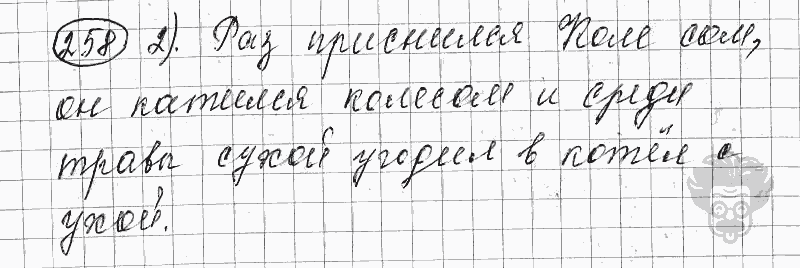 258 2). Раз приснился Коле сом,
он катился колесом и среди
травы сухой угодил в котёл с
ухой.